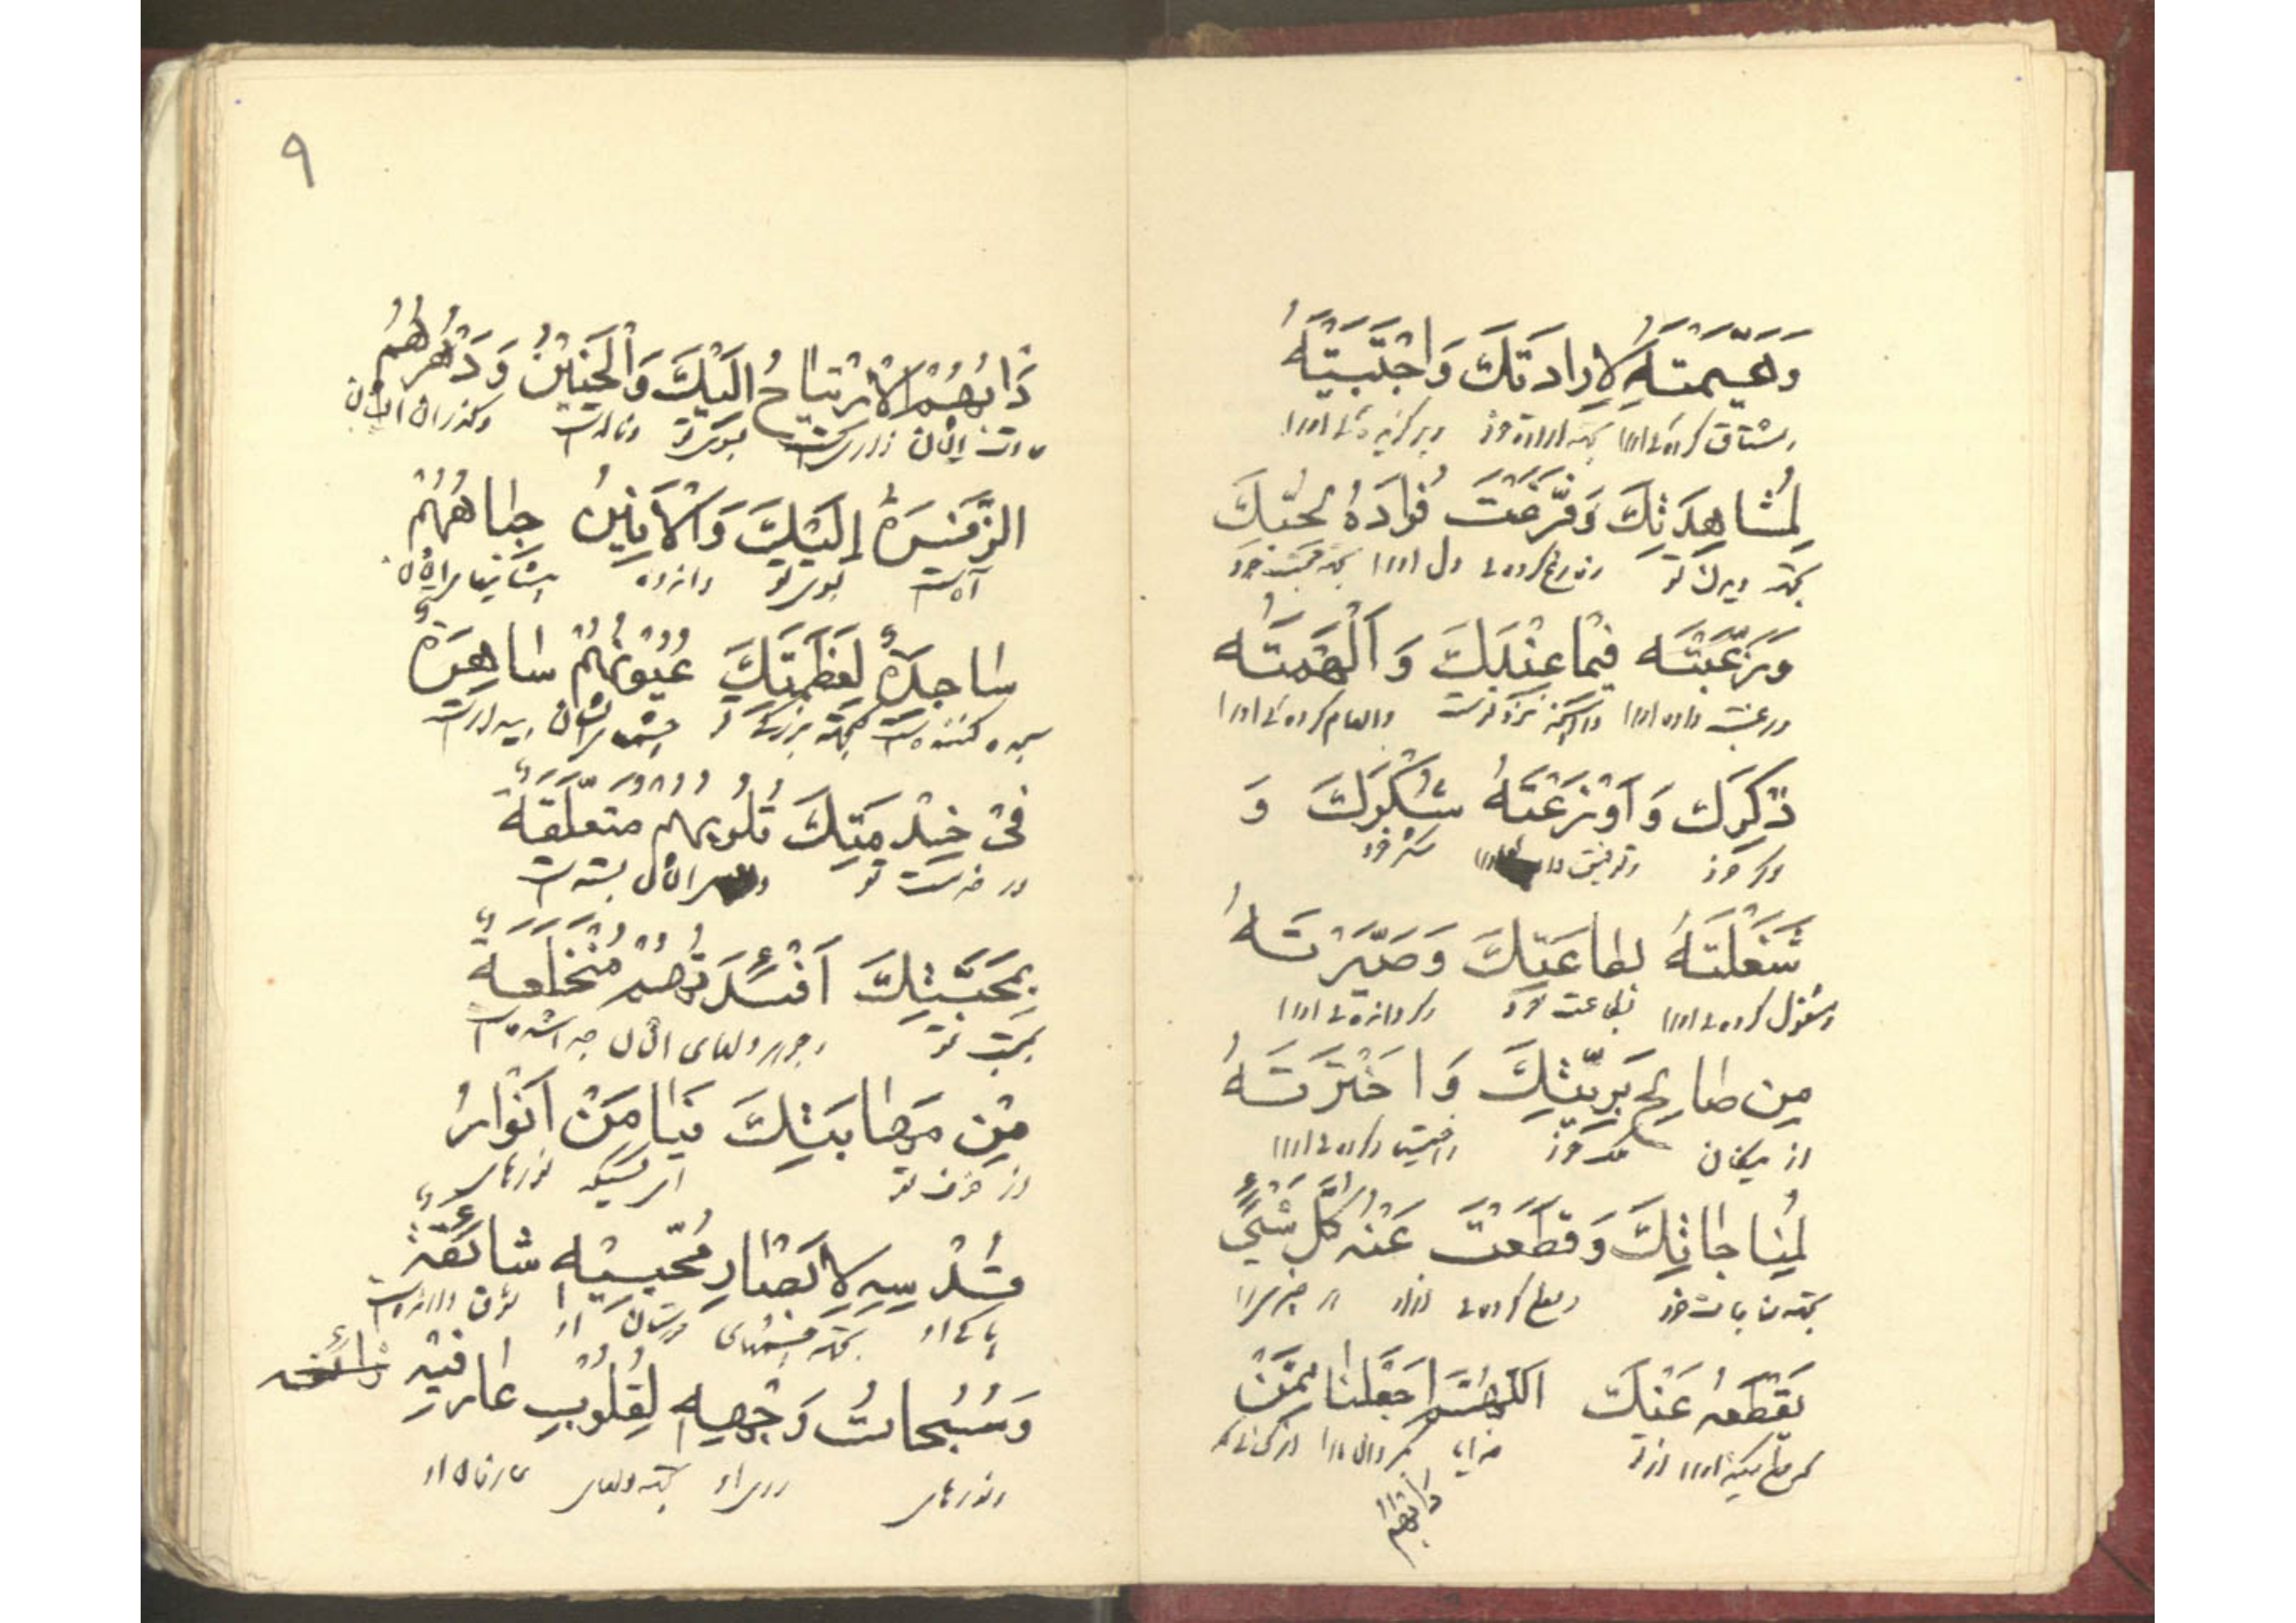 وَهَيَّمْتَهُ لِاِرادَتِكَ وَاجْتَبَيْتَهُ
ومشتاق کردهٔ اورا بجهة ارادهٔ خود وبرگزیدهٔ اورا
لِمُشاهَدَتِكَ وَفَرَّغْتَ فُؤادَهُ لِحُبِّكَ
بجهة دیدن تو وفارغ کردهٔ دل اورا بجهة محبت خود
وَرَغَّبْتَه فيما عِنْدَكَ وَ اَلْهَمْتَهُ
ورغبت داده اورا در آنچه نزد تست والهام کردهٔ اورا
ذِكْرَكَ وَ اَوْزَعْتَهُ شُكْرَكَ وَ
ذکر خود وتوفیق شکر خود
شَغَلْتَهُ بِطاعَتِكَ وَصَيَّرْتَهُ
ومشغول کردهٔ اورا بطاعت خود وگردانیدهٔ اورا
مِن صالِحِ بَرِيَّتِكَ وَاخْتَرْتَهُ
از نیکان خلق خود واختیار کردهٔ اورا
لِمُناجاتِكَ وَقَطَعْتَ عَنْهُ كُلَّ شَيْءٍ
وقطع کردهٔ ازاو هر چیز را
يَقْطَعُهُ عَنْكَ اَللّهُمَّ اجْعَلْنا مِمَّنْ
که قطع میکند اورا از تو خدایا بگردان مارا از کسانیکه
دَابُهُمُ
٩
دَابُهُمُ الْاِرْتِياحُ اِلَيْكَ وَالْحَنينُ وَدَهْرُهُمُ
عادت ایشان بسوی تو وناله است وگذران ایشان
الزَّفْرَةُ اِلَيْكَ وَالْاَنينُ جِباهُهُمْ
آه است بسوی تو واندوه پیشانیهای ایشان
ساجِدَةٌ لِعَظَمَتِكَ عُيُونُهُمْ ساهِرَةٌ
سجده کننده است بجهة بزرگی تو چشمهای ایشان بیدار است
في خِدْمَتِكَ قُلُوبُهُمْ مُتَعَلِّقَةٌ
در خدمت تو ایشان بسته است
بِمَحَبَّتِكَ اَفْئِدَتُهُمْ مُنْخَلِعَةٌ
بمحبت تو دلهای ایشان
مِنْ مَهابَتِكَ يا مَنْ اَنْوارُ
از خوف تو ای کسیکه نورهای
قُدْسِهِ لِاَبْصارِ مُحِبّيهِ شائِقَةٌ
پاکی او بجهة چشمهای دوستان او
وَسُبُحاتُ وَجْهِهِ لِقُلُوبِ عارِفيهِ
ونورهای روی او بجهة دلهای عارفان او